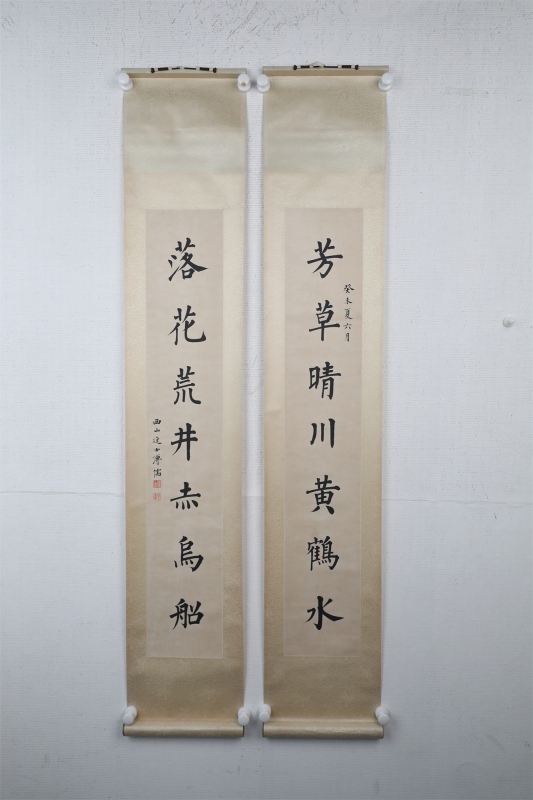 芳草晴川黄鶴水
癸未夏六月
落花荒井赤烏船
西山逸士溥儒